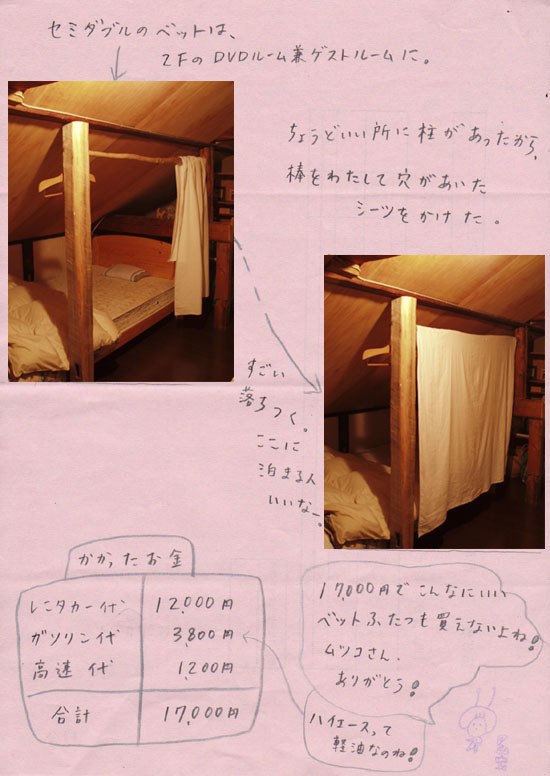 セミダブルのベットは、
2FのDVDルーム兼ゲストルームに。
ちょうどいい所に柱があったから、
棒をわたして穴があいた
シーツをかけた。
すごい
落ちつく。
ここに
泊まる人
いいなー。
かかったお金
レンタカー代 12,000円
ガソリン代 3,800円
高速代 1,200円
合計 17,000円
17,000円でこんなにいい
ベットふたつも買えないよね!
ムツコさん、
ありがとう!
ハイエースって
軽油なのね!